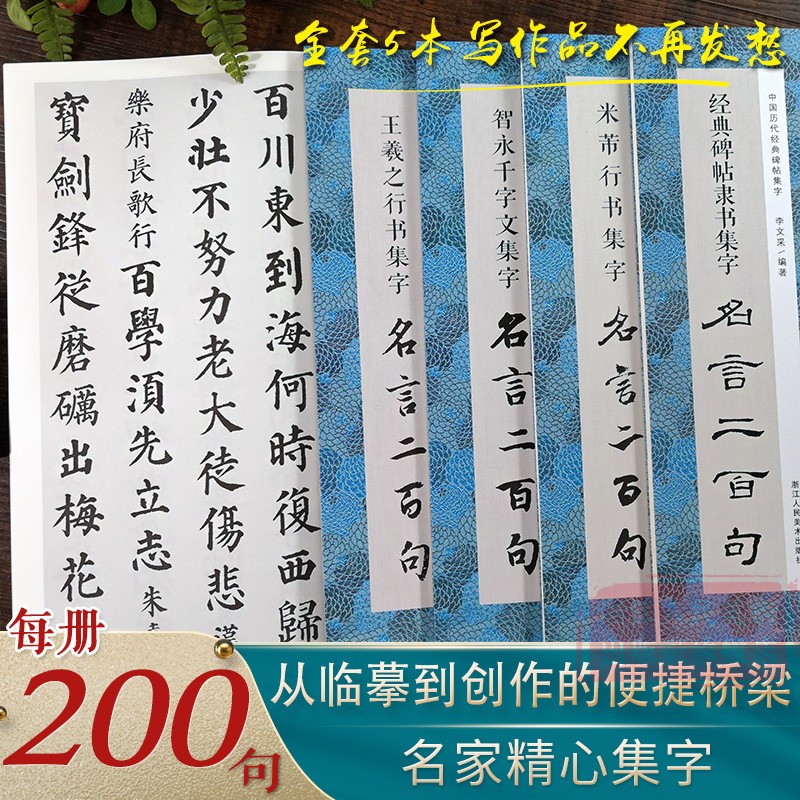 全套5本 写作品不再发愁
百川東到海何時復西歸
少壯不努力老大徒傷悲
樂府長歌行
百學須先立志
朱
寶劍鋒從磨礪出梅花
王羲之行书集字
名言二百句
智永千字文集字
名言二百句
米芾行书集字
名言二百句
经典碑帖隶书集字
名言二百句
中国历代经典碑帖集字
李文采/编著
浙江人民美术出版社
每册
200句
从临摹到创作的便捷桥梁
名家精心集字